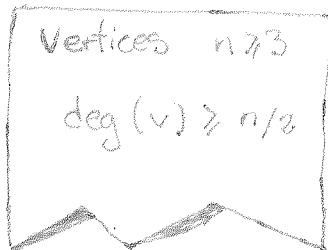 Vertices n ⩾ 3
deg(v) ⩾ n/2